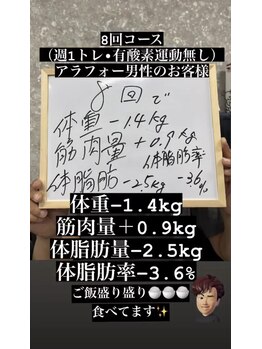 8回コース
(週1トレ•有酸素運動無し)
アラフォー男性のお客様
8回で
体重 -1.4kg
筋肉量 +0.9kg
体脂肪 -2.5kg
体脂肪率 -3.6%
体重-1.4kg
筋肉量+0.9kg
体脂肪量-2.5kg
体脂肪率-3.6%
ご飯盛り盛り🍚🍚🍚
食べてます✨